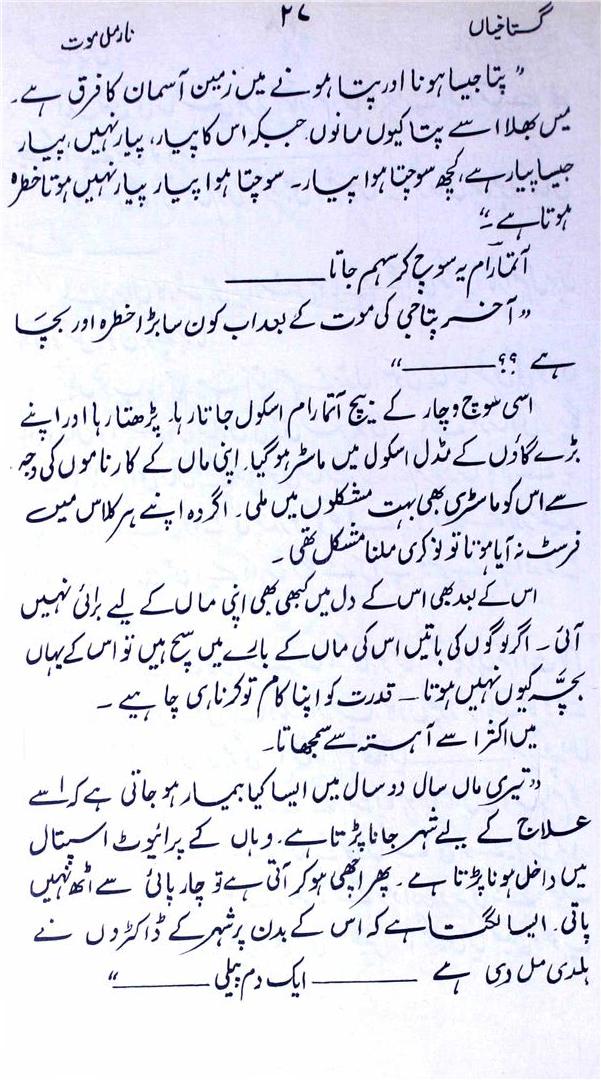 گستاخیاں ۲۷ نارمل موت
” پتا جیسا ہونا اور پتا ہونے میں زمین آسمان کا فرق ہے۔
میں بھلا اسے پتا کیوں مانوں جبکہ اس کا پیار، پیار نہیں، پیار
جیسا پیار ہے، کچھ سوچتا ہوا پیار۔ سوچتا ہوا پیار پیار نہیں ہوتا خطرہ
ہوتا ہے۔“
آتمارام یہ سوچ کر سہم جاتا ______
” آخر پتاجی کی موت کے بعد اب کون سا بڑا خطرہ اور بچا
ہے ؟؟ ______“
اسی سوچ وچار کے بیچ آتمارام اسکول جاتا رہا۔ پڑھتا رہا اور اپنے
بڑے گاؤں کے مڈل اسکول میں ماسٹر ہوگیا۔ اپنی ماں کے کارناموں کی وجہ
سے اس کو ماسٹری بھی بہت مشکلوں میں ملی۔ اگر وہ اپنے ہر کلاس میں
فرسٹ نہ آیا ہوتا تو نوکری ملنا مشکل تھی۔
اس کے بعد بھی اس کے دل میں کبھی بھی اپنی ماں کے لیے برائی نہیں
آئی۔ اگر لوگوں کی باتیں اس کی ماں کے بارے میں سچ ہیں تو اس کے یہاں
بچّہ کیوں نہیں ہوتا ــ قدرت کو اپنا کام تو کرنا ہی چاہیے۔
میں اکثر اسے آہستہ سے سمجھاتا۔
” تیری ماں سال دو سال میں ایسا کیا بیمار ہو جاتی ہے کہ اسے
علاج کے لیے شہر جانا پڑتا ہے۔ وہاں کے پرائیوٹ اسپتال
میں داخل ہونا پڑتا ہے۔ پھر اچھی ہو کر آتی ہے تو چارپائی سے اٹھ نہیں
پاتی۔ ایسا لگتا ہے کہ اس کے بدن پر شہر کے ڈاکٹروں نے
ہلدی مل دی ہے ______ ایک دم پیلی ______“